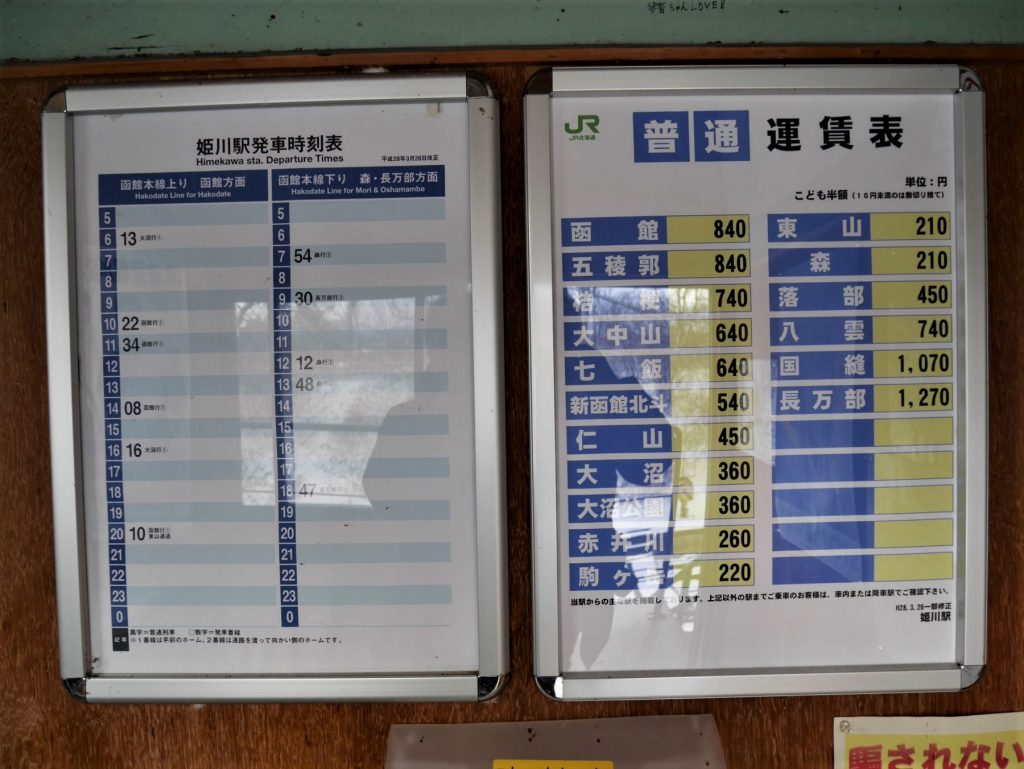 姫川駅発車時刻表
Himekawa sta. Departure Times
平成28年3月26日改正
函館本線上り 函館方面
Hakodate Line for Hakodate
函館本線下り 森・長万部方面
Hakodate Line for Mori & Oshamambe
5 5
6 13 大沼行① 6
7 7 54 森行②
8 8
9 9 30 長万部行②
10 22 函館行① 10
11 34 函館行① 11
12 12 12 森行②
13 13 48 森行
14 08 函館行① 14
15 15
16 16 大沼行① 16
17 17
18 18 47 長万部行
19 19
20 10 函館行① 東山通過 20
21 21
22 22
23 23
0 0
記事 黒字=普通列車 ○数字=発車番線
※1番線は手前のホーム、2番線は通路を渡って向かい側のホームです。
JR
JR北海道
普通運賃表
単位:円
こども半額(10円未満のは数切り捨て)
函館 840 東山 210
五稜郭 840 森 210
桔梗 740 落部 450
大中山 640 八雲 740
七飯 640 国縫 1,070
新函館北斗 540 長万部 1,270
仁山 450
大沼 360
大沼公園 360
赤井川 260
駒ヶ岳 220
当駅からの主な駅を掲載しております。上記以外の駅までご乗車のお客様は、車内または降車駅でご確認下さい。
H28.3.26一部修正
姫川駅
騙されない